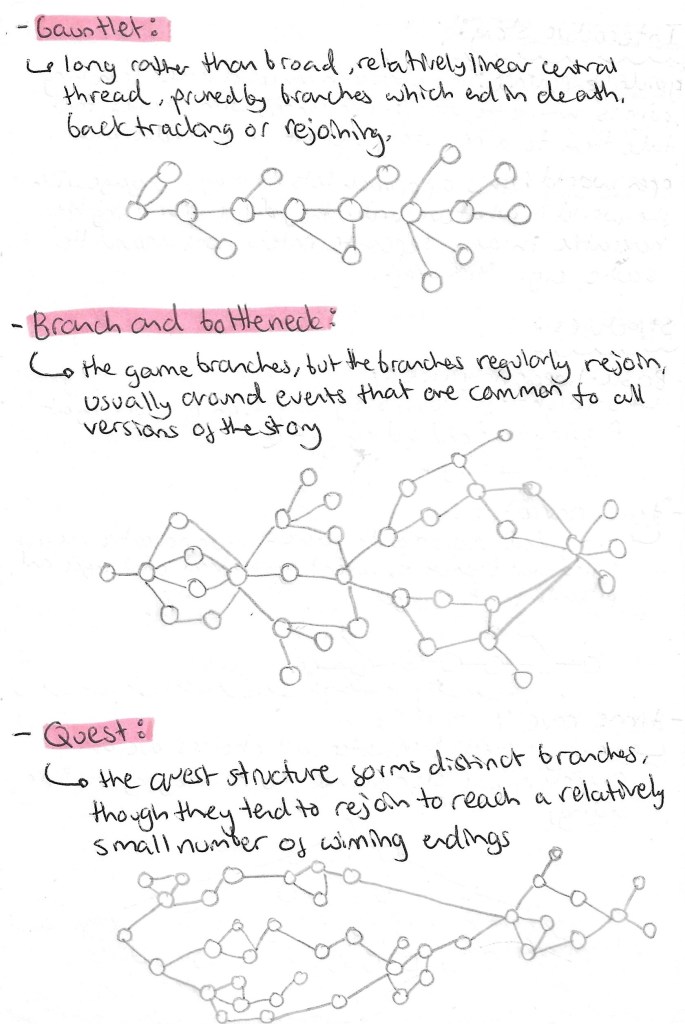 - Gauntlet:
↳ long rather than broad, relatively linear central
thread, pruned by branches which end in death,
backtracking or rejoining.
- Branch and bottleneck:
↳ the game branches, but the branches regularly rejoin,
usually around events that are common to all
versions of the story
- Quest:
↳ the quest structure forms distinct branches,
though they tend to rejoin to reach a relatively
small number of winning endings